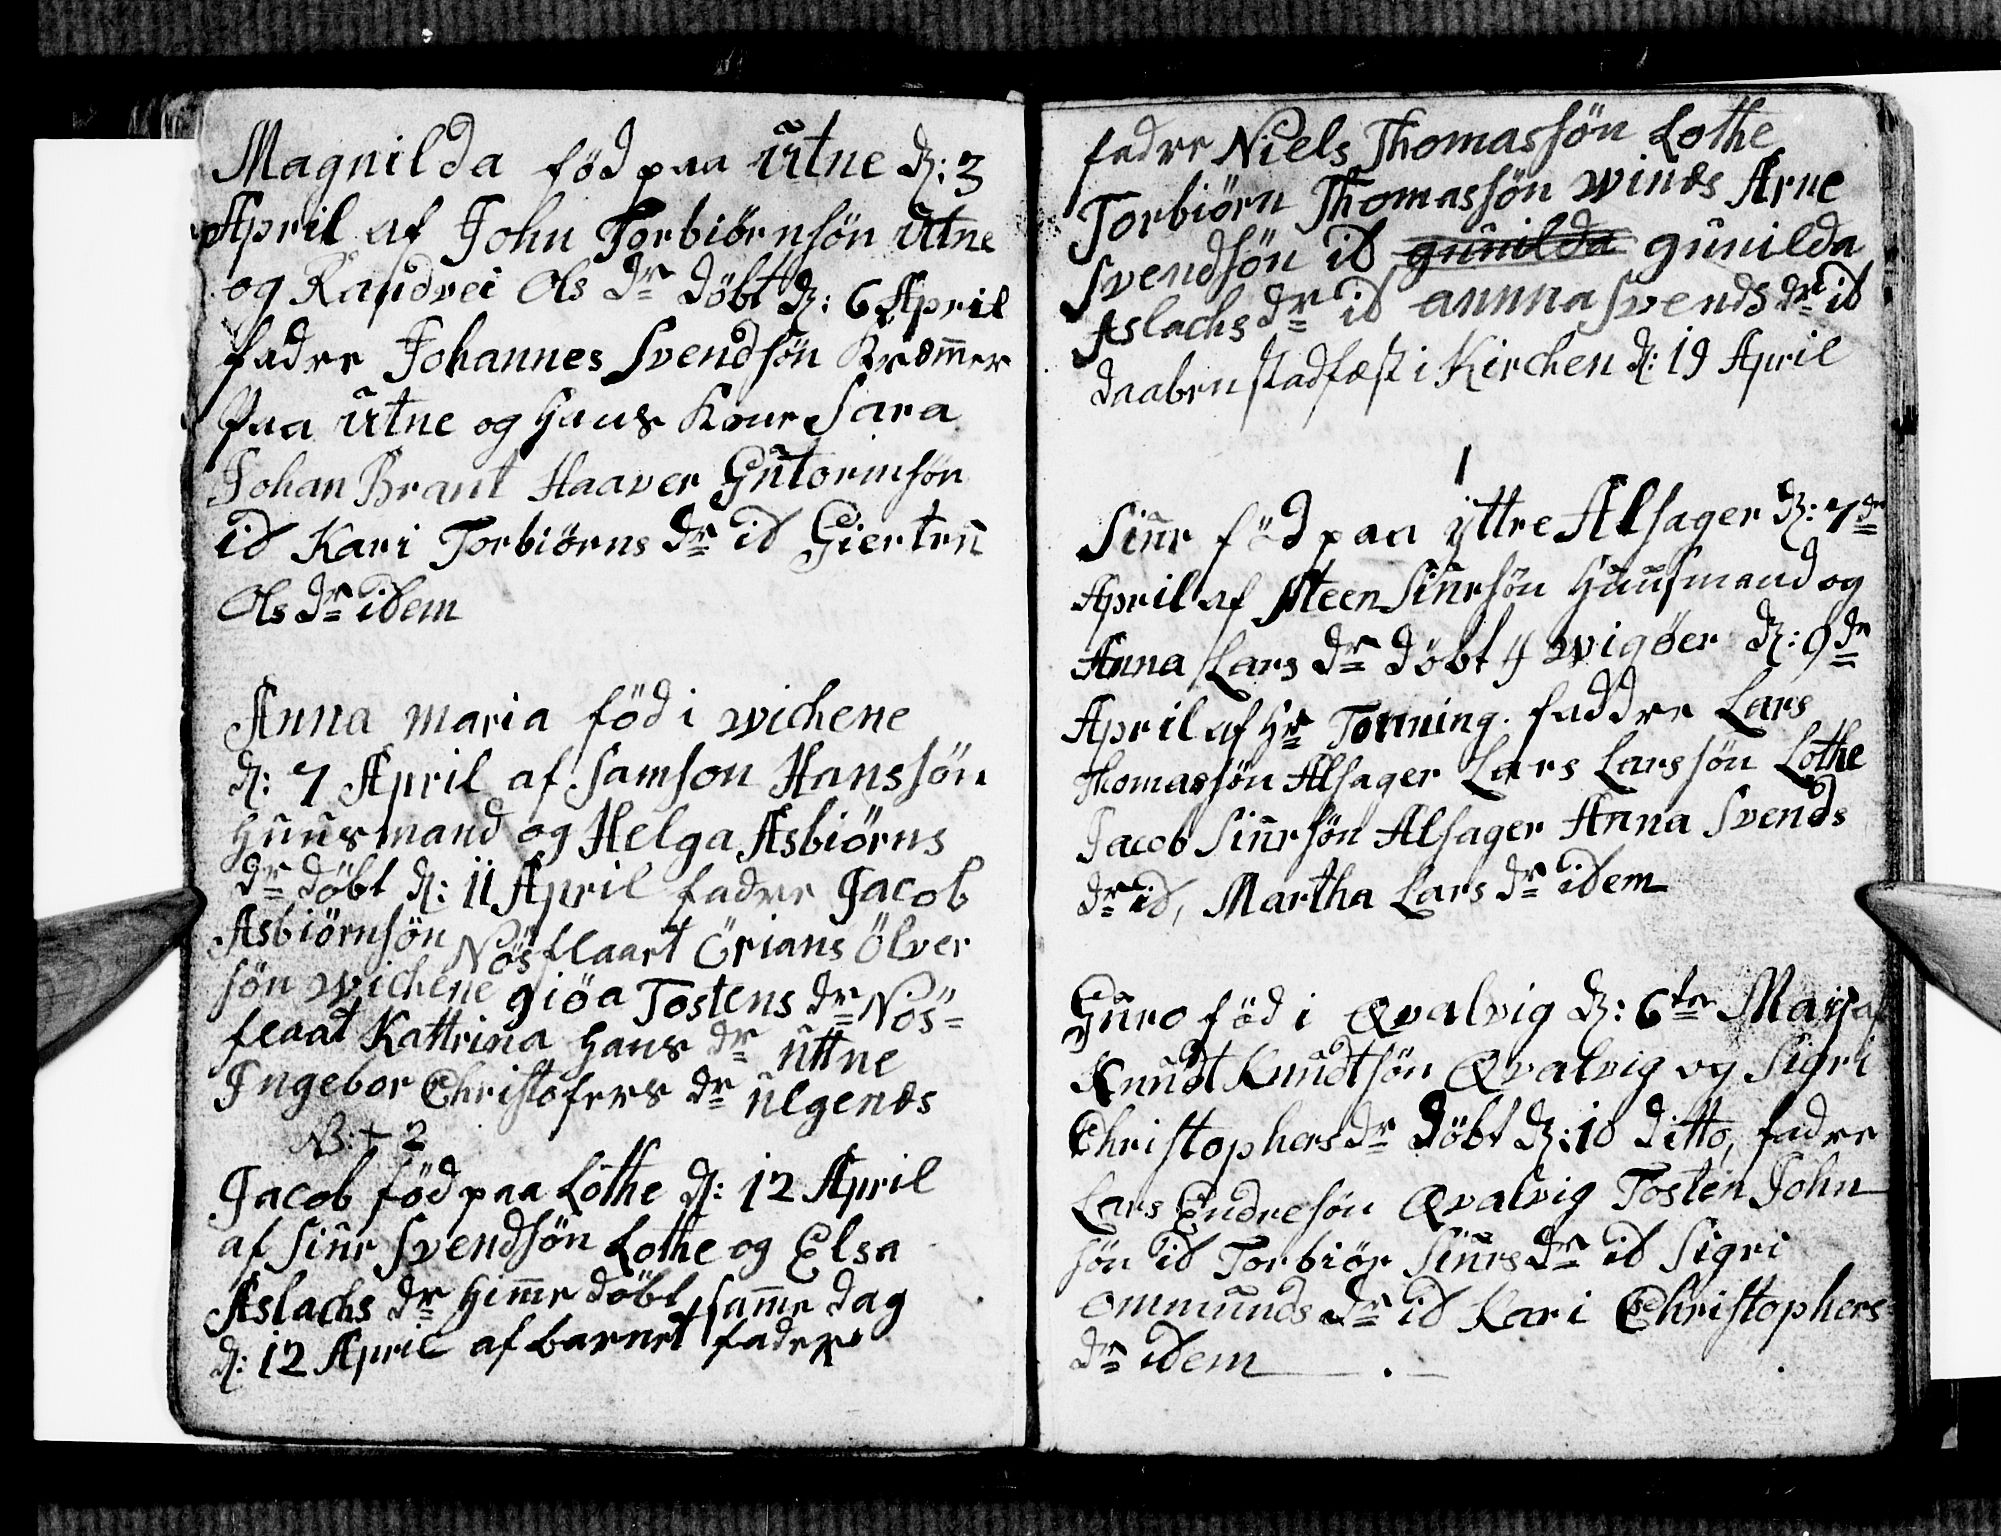 Magnilda föd paa Utne d: 3
April af John Torbiørnsön Utne
og Randvei Ols dr döbt d: 6 April
fadre Johannes Svendsön Kræmmer
paa Utne og Hans Kone Sara
Johan Brant Haaver Gutormsön
id Kari Torbiørns dr id Giertru
Ols dr idem
Anna maria föd i wichene
d: 7 April af Samson Hanssön
Huusmand og Helga Asbiörns
dr döbt d: 11 April fadre Jacob
Asbiörnsön Nösflaart Örians Ölver
sön wichene giöa Tostens dr Nös=
flaat Kattrina Hans dr uttne
Ingebor Christofers dr ulgenes
NB: + 2
Jacob föd paa Lothe d: 12 April
af Siur Svendsön Lothe og Elsa
Aslachs dr Himme döbt samme dag
d: 12 April af barnet fader
fadre Niels Thomassön Lothe
Torbiörn Thomassön winæs Arne
Svendsön id gunilda gunilda
Aslachs dr id annna Svends dr id
daaben stadfæst i Kirchen d: 19 April
1
Siur föd paa yttre Alsager d: 7de
April af Steen Siursön Huusmand og
Anna Lars dr döbt i wigöer d: 9de
April af Hr Tonning. faddre Lars
Thomassön Alsager Lars Larssön Lothe
Jacob Siursön Alsager Anna Svends
dr id, Martha Lars dr idem
Guro föd i Qvalvig d: 6te Maij af
Knudt Knudtsön Qvalvig og Sigri
Christophers dr döbt d: 10 ditto, fadre
Lars Endresön Qvalvig Tosten John
sön id Torbiör Siurs dr id Sigri
ommunds dr id Kari Christophers
dr idem